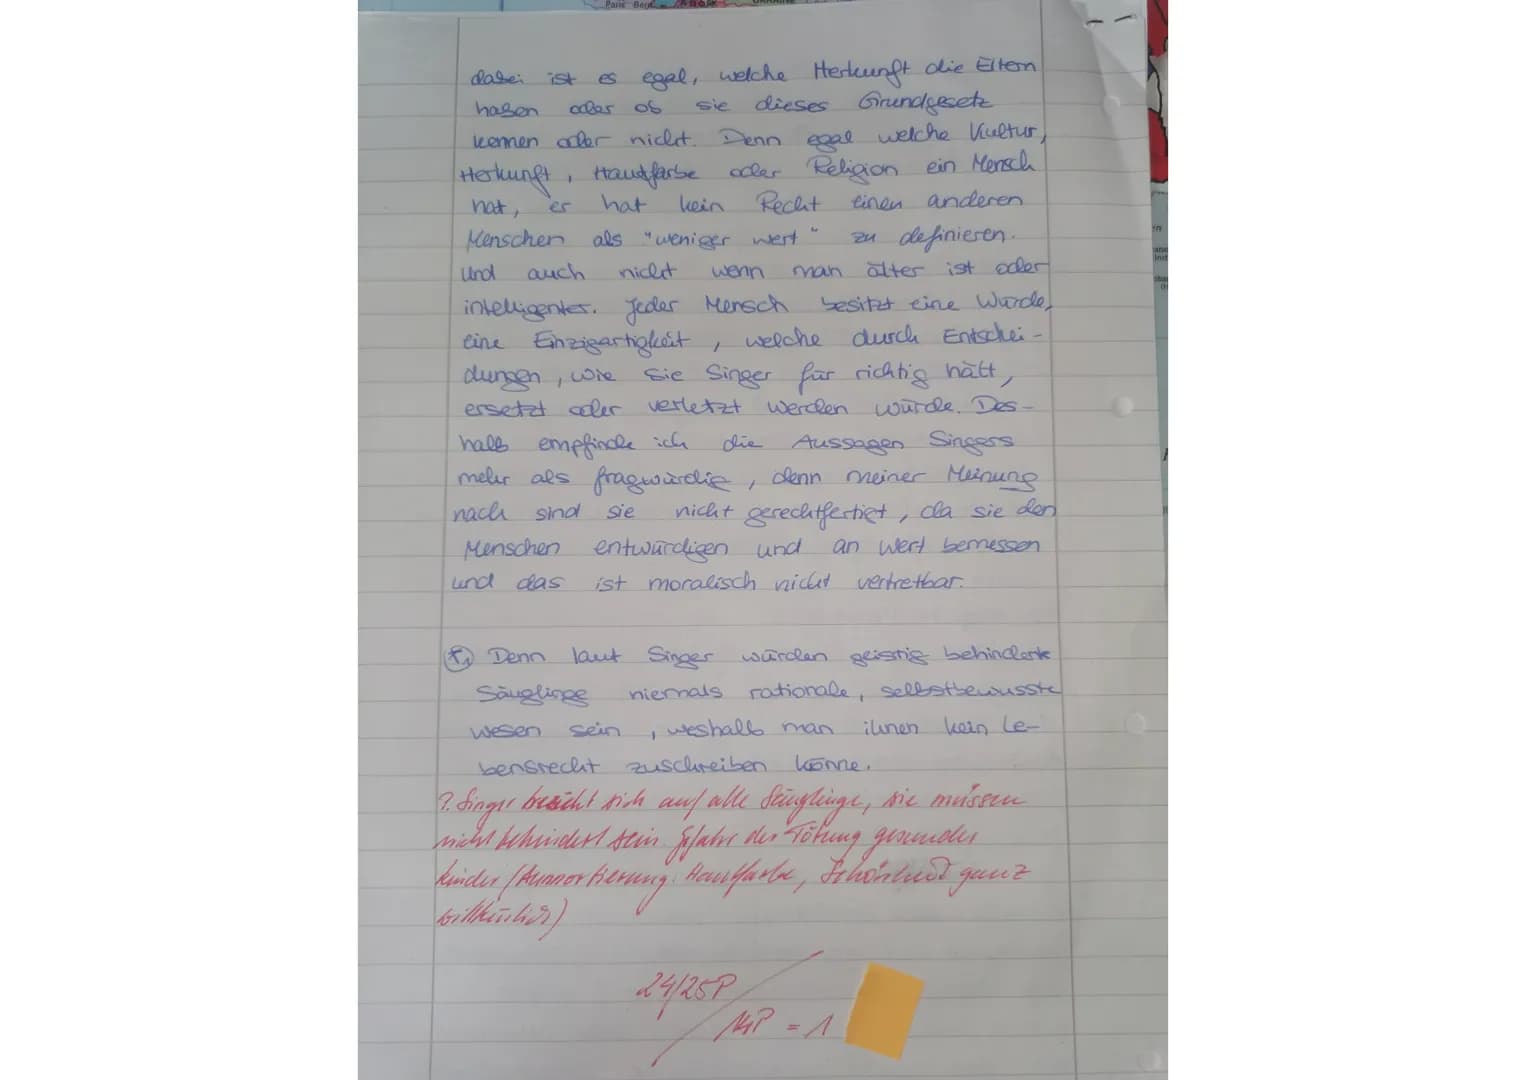 dabei ist es egal, welche Herkunft die Eltern
haben oder ob sie dieses Grundgesetz
kennen oder nicht. Denn egal welche Kultur,
Herkunft, Hautfarbe oder Religion ein Mensch
hat, er hat kein Recht einen anderen
Menschen als "weniger wert" zu definieren.
Und auch nicht wenn man älter ist oder
intelligenter. Jeder Mensch besitzt eine Würde,
eine Einzigartigkeit, welche durch Entschei-
dungen, wie sie Singer für richtig hält,
ersetzt oder verletzt werden würde. Des-
halb empfinde ich die Aussagen Singers
mehr als fragwürdig, denn meiner Meinung
nach sind sie nicht gerechtfertigt, da sie den
Menschen entwürdigen und an Wert bemessen
und das ist moralisch nicht vertretbar.
Denn laut Singer würden geistig behinderte
Säuglinge niemals rationale, selbstbewusste
Wesen sein, weshalb man ihnen kein Le-
bensrecht zuschreiben könne.
?. Singer bezieht sich auf alle Säuglinge, sie müssen
nicht behindert sein. Gefahr der Tötung gesunder
Kinder (Aussortierung: Hautfarbe, Schönheit ganz
willkürlich)
24/25P
14P = 1